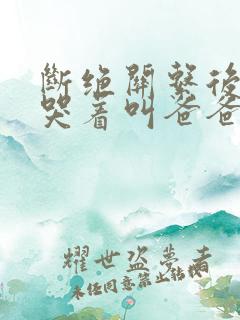 斷绝關繫後
哭着叫爸爸
耀世盗夢者
未经同意禁止转载